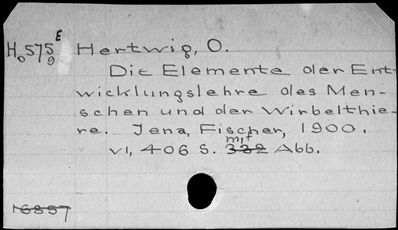 Ho575E9 Hertwig, O.
Die Elemente der Ent-
wicklungslehre des Men-
schen und der Wirbelthie-
re. Jena, Fischer, 1900.
VI, 406 S. mit 332 Abb.
16857